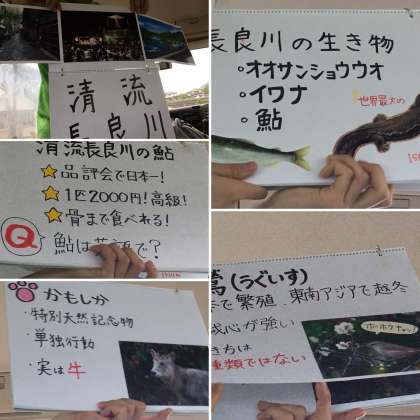 清流
長良川
長良川の生き物
・オオサンショウウオ
・イワナ
・鮎
世界最大の
清流長良川の鮎
☆品評会で日本一!
☆1匹2000円!高級!
☆骨まで食べれる!
Q 鮎は英語で?
かもしか
・特別天然記念物
・単独行動
・実は牛
鶯(うぐいす)
で繁殖、東南アジアで越冬
戒心が強い
種類ではない
ホーホケキョッ!